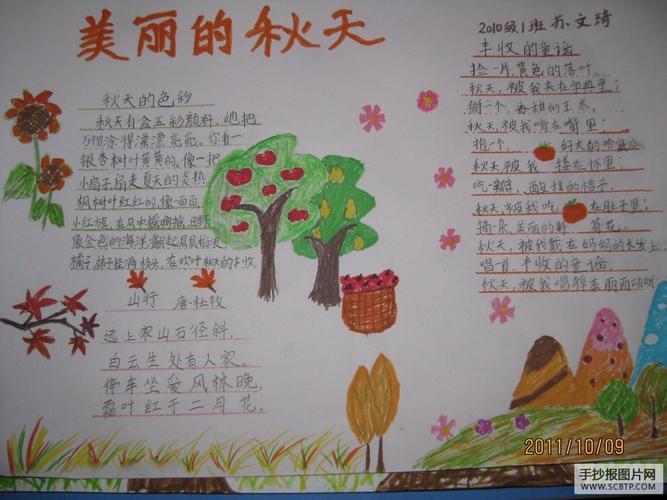 美丽的秋天
秋天的色彩
秋天有盒五彩颜料,他把
万物涂得漂漂亮亮。你看一
银杏树叶黄黄的,像一把
小扇子扇走夏天的炎热
枫树叶红红的,像一面面
小红旗,在风中摇啊摇,田野
像金色的海洋,翻起层层稻浪
橘子柿子挂满枝头,在欢呼秋天的丰收.
山行 唐·杜牧
远上寒山石径斜,
白云生处有人家。
停车坐爱风林晚,
霜叶红于二月花。
2010级1班 苏文琦
丰收的童话
捡一片,黄色的落叶,
秋天,被我夹在字典里;
掰一个,香甜的玉米,
秋天,被我啃在嘴里;
抱一个, 好大的哈蜜瓜
秋天,被我 搂在怀里;
吃一瓣,酸甜的桔子,
秋天,被我吃 在肚子里;
摘朵,美丽的野 菊花,
秋天,被我戴在妈妈的头发上,
唱首,丰收的童谣,
秋天,被我唱得美丽而动听
2011/10/09
手抄报图片网
WWW.SCBTP.COM